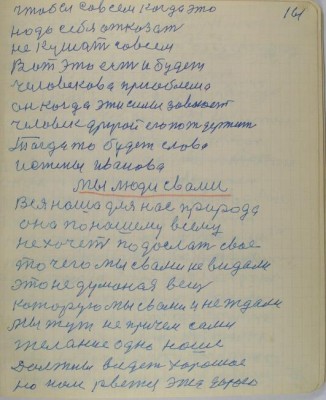 161
чтобы совсем когда это
надо себя отказат
не кушат совсем
Вот это ест и будет
человекова
он когда эти силы завоюет
человек другой его поддержит
Тогда то будет слова
истины иванова
мы люди с вами
Вся наша для нас природа
она по нашому всему
не хочет подослат свое
то чего мы с вами не видали
это не думоная вещ
которую мы с вами и не ждали
мы тут не причем сами
желание одно наше
Должны видет хорошое
но нам рветса это